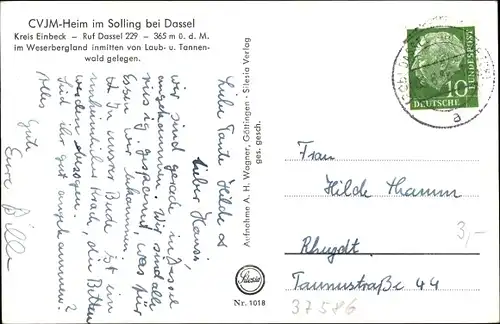 CVJM-Heim im Solling bei Dassel
Kreis Einbeck – Ruf Dassel 229 – 365 m ü. d. M.
im Weserbergland inmitten von Laub- u. Tannen-
wald gelegen.
Liebe Tante Hilde &
lieber Hansi,
wir sind gerade in Dassel
angekommen. Wir sind alle
gespannt, was für
Essen wir bekommen.
In unserer Bude ist ein
Krach, die Betten
werden bezogen.
Seid ihr gut angekommen?
Alles Gute
Eure
Aufnahme A. H. Wagner, Göttingen - Silesia Verlag
ges. gesch.
Silesia
Nr. 1018
10
DEUTSCHE
BUNDESPOST
a
Frau
Hilde Thamm
Rheydt
Taunusstraße 44
3,-
37586